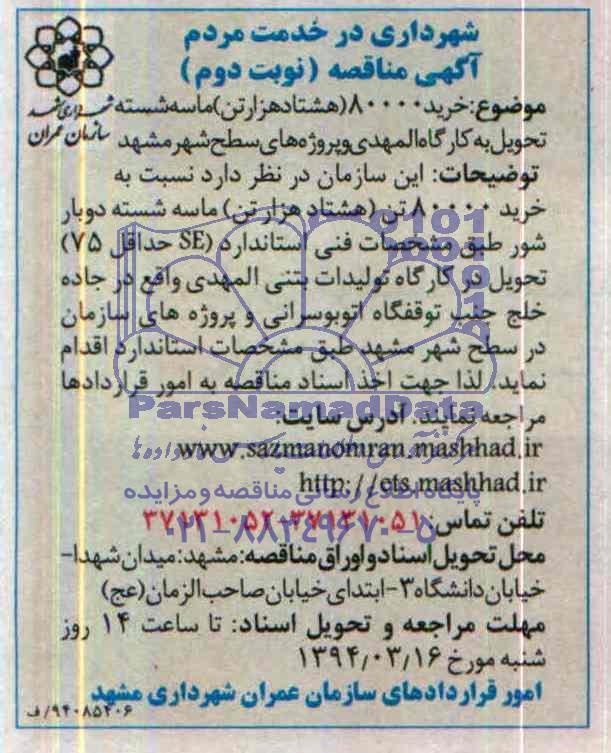 شهرداری در خدمت مردم
آگهی مناقصه (نوبت دوم)
شهرداری مشهد
سازمان عمران
موضوع: خرید ۸۰۰۰۰ (هشتاد هزار تن) ماسه شسته
تحویل به کارگاه المهدی و پروژه های سطح شهر مشهد
توضیحات: این سازمان در نظر دارد نسبت به
خرید ۸۰۰۰۰ تن (هشتاد هزار تن) ماسه شسته دوبار
شور طبق مشخصات فنی استاندارد (SE حداقل ۷۵)
تحویل در کارگاه تولیدات بتنی المهدی واقع در جاده
خلج جنب توقفگاه اتوبوسرانی و پروژه های سازمان
در سطح شهر مشهد طبق مشخصات استاندارد اقدام
نماید. لذا جهت اخذ اسناد مناقصه به امور قراردادها
مراجعه نمایند. آدرس سایت:
www.sazmanomran.mashhad.ir
http://ets.mashhad.ir
تلفن تماس: ۳۷۱۳۱۰۵۱-۳۷۱۳۱۰۵۲
محل تحویل اسناد و اوراق مناقصه: مشهد: میدان شهدا-
خیابان دانشگاه ۳- ابتدای خیابان صاحب الزمان (عج)
مهلت مراجعه و تحویل اسناد: تا ساعت ۱۴ روز
شنبه مورخ ۱۳۹۴/۰۳/۱۶
امور قراردادهای سازمان عمران شهرداری مشهد
۹۴۰۸۵۴۰۶/ف
ParsNamadData
پایگاه اطلاع رسانی مناقصه و مزایده
۰۲۱-۸۸۳۴۹۶۷۰-۵